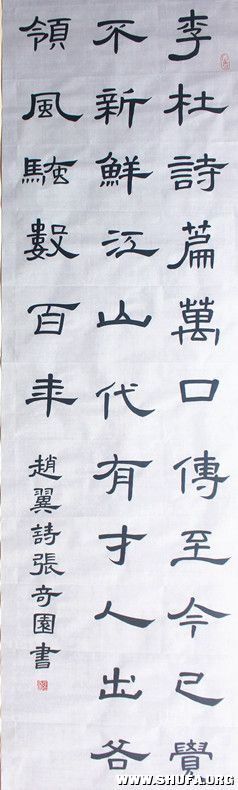 李杜詩篇萬口傳至今已覺
不新鮮江山代有才人出各
領風騷數百年
趙翼詩張奇園書
WWW.SHUFA.ORG